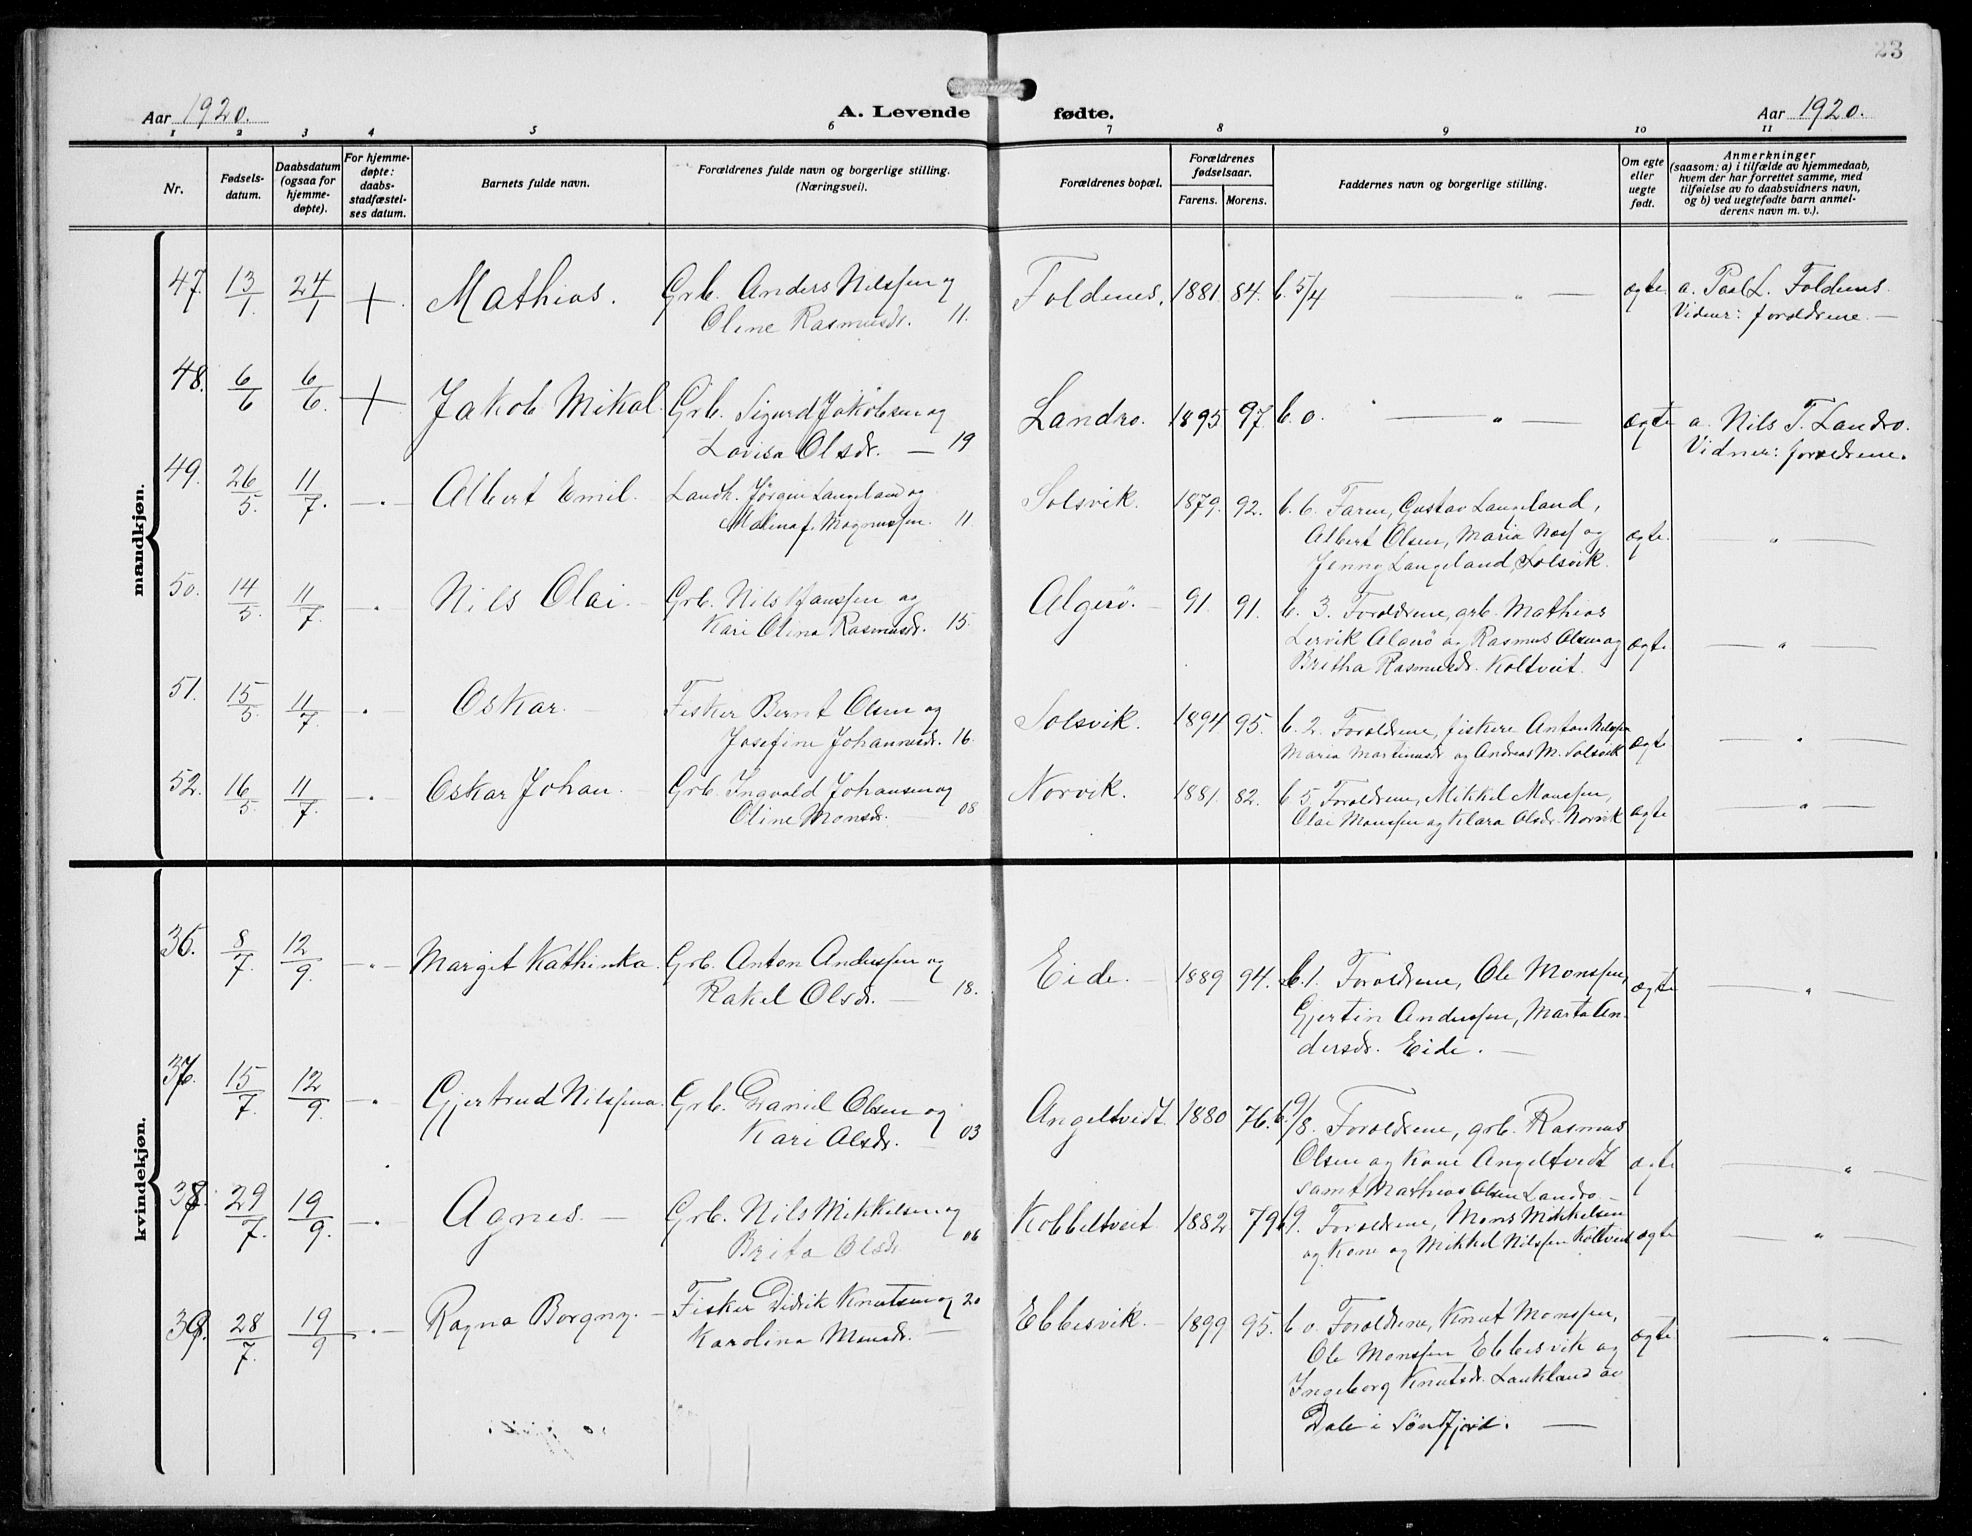 23
Aar 1920.
A. Levende fødte.
Aar 1920.
1 2 3 4 5 6 7 8 9 10 11
Nr.
Fødsels-
datum.
Daabsdatum
(ogsaa for
hjemme-
døpte).
For hjemme-
døpte:
daabs-
stadfæstel-
ses datum.
Barnets fulde navn.
Forældrenes fulde navn og borgerlige stilling.
(Næringsvei).
Forældrenes bopæl.
Forældrenes
fødselsaar.
Farens. Morens.
Faddernes navn og borgerlige stilling.
Om egte
eller
uegte
født.
Anmerkninger
(saasom: a) i tilfælde av hjemmedaab,
hvem der har forrettet samme, med
tilføielse av to daabsvidners navn,
og b) ved uegtefødte barn anmel-
derens navn m. v.).
mandkjøn.
47. 13/1. 24/1 + Mathias. Grb. Anders Nilssen og Foldenes. 1881. 84. b. 5/4 " — ægte a. Paal L. Foldenes.
Oline Rasmusdr. 11. Vidner: forældrene. —
48. 6/6 6/6. + Jakob Mikal. Grb. Sigurd Jakobsen og Landro. 1895 97. b. o. " — " — ægte a. Nils T. Landro.
Lovisa Olsdr. — 19 Vidner: forældrene.
49. 26/5. 11/7. — " — Albert Emil. Landh. Jørgen Langeland og Solsvik. 1879. 92. b. 6. Faren, Gustav Langeland,
Malena f. Magnussen. 11. Albert Olsen, Maria Næss og ægte. — " —
Jenny Langeland, Solsvik.
50. 14/5. 11/7. — " — Nils Olai. Grb. Nils Hanssen og Algerø. — 91. 91. b. 3. Forældrene, grb. Mathias
Kari Olina Rasmusdr. 15. Lervik Algerø og Rasmus Olsen og ægte — " —
Britha Rasmusdr. Koltveit.
51. 15/5. 11/7 — " — Oskar. — Fisker Bernt Olsen og Solsvik. 1894 95. b. 2. Forældrene, fiskere Anton Nilssen
Josefine Johannesdr. 16. Maria Martinusdr og Andreas M. Solsvik ægte — " —
52. 16/5 11/7. — " — Oskar Johan. — Grb. Ingvald Johansen og Norvik. 1881. 82. b 5. Forældrene, Mikkel Monssen,
Oline Monsdr. 08 Olai Monssen og Klara Olsdr. Norvik ægte — " —
kvindekjøn.
36. 8/7. 12/9. — " — Margit Kathinka. Grb. Anton Anderssen og Eide. — 1889 94. b. 1. Forældrene, Ole Monssen,
Rakel Olsdr. — 18. Gjertin Anderssen, Marta An- ægte — " —
dersdr. Eide. —
37. 15/7. 12/9. — " Gjertrud Nilssena. Grb. Daniel Olsen og Angeltvedt. 1880 76. b. 9/8. Forældrene, grb. Rasmus
Kari Olsdr. — 03 Olsen og Kone Angeltvedt ægte — " —
samt Mathias Olsen Landro. —
38. 29/7. 19/9. — " Agnes. — Grb. Nils Mikkelsen og Kobbeltveit 1882 79 b. 9. Forældrene, Mons Mikkelsen
Brita Olsdr 06 og Kone og Mikkel Nilssen Koltveit ægte — " —
39. 28/7. 19/9 — " — Ragna Borgny. — Fisker Didrik Knutsen og 20 Ebbesvik. — 1899 95. b. o. Forældrene, Knut Monssen,
Karolina Monsdr. — Ole Monssen Ebbesvik og ægte — " —
Ingeborg Knutsdr. Laukland av
Dale i Søndfjord. —